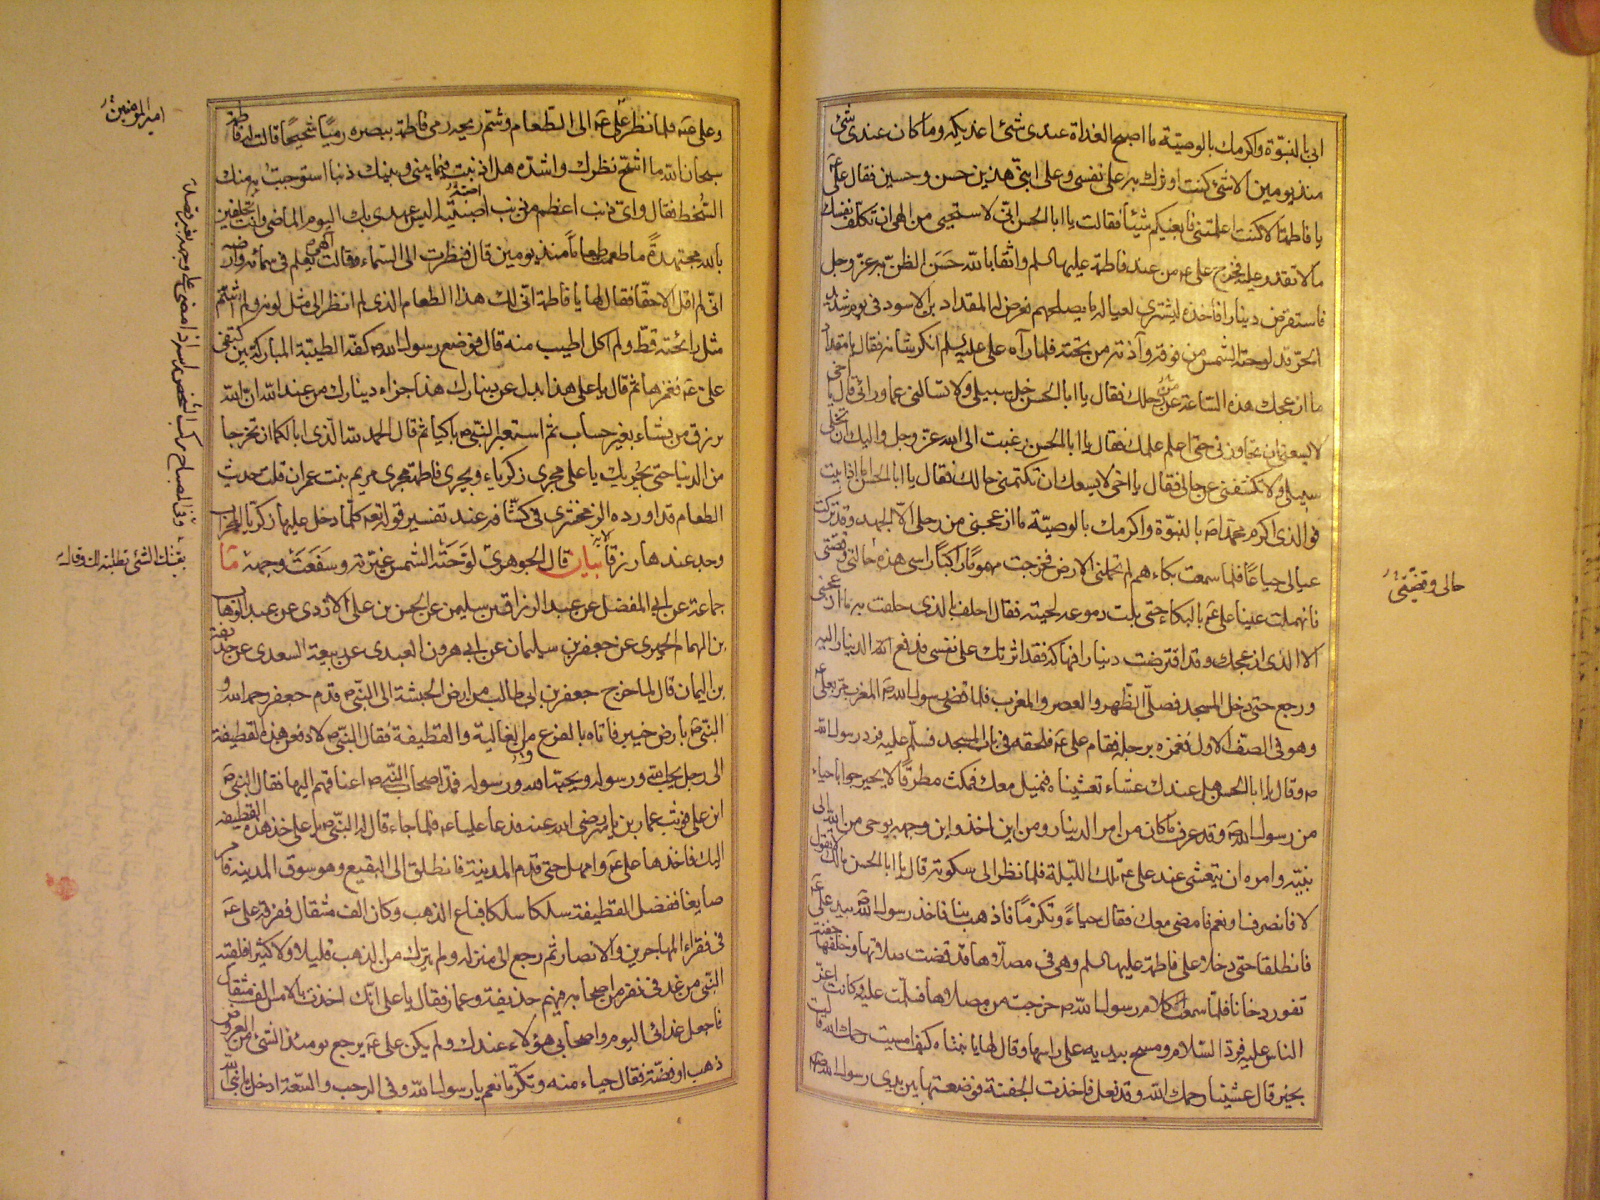 ابي بالنبوة واكرمك بالوصية ما اصبح الغداة عندي شئ اغذيكه وما كان عندي شئ
منذ يومين الا شئ كنت اوثرك به على نفسي وعلى ابني هذين حسن وحسين فقال علي
يا فاطمة الا كنت اعلمتني فابغيكم شيئا فقالت يا ابا الحسن اني لاستحيي من الهي ان تكلف نفسك
ما لا تقدر عليه فخرج علي ع من عند فاطمة عليها السلم واثقا بالله حسن الظن به عز وجل
فاستقرض دينارا فاخذه ليشتري لعياله ما يصلحهم فعرض له المقداد بن الاسود في يوم شديد
الحر قد لوحته الشمس من فوقه وآذته من تحته فلما رآه علي عليه السلم انكر شانه فقال يا مقداد
ما ازعجك هذه الساعة من رحلك فقال يا ابا الحسن خل سبيلي ولا تسالني عما ورائي قال يا اخي
لا يسعني ان تجاوزني حتى اعلم علمك فقال يا ابا الحسن رغبت الى الله عز وجل واليك ان تخلي
سبيلي ولا تكشفني عن حالي فقال يا اخي لا يسعك ان تكتمني حالك فقال يا ابا الحسن اما اذا ابيت
فوالذي اكرم محمدا ص بالنبوة واكرمك بالوصية ما ازعجني من رحلي الا الجهد وقد تركت
عيالي جياعا فلما سمعت بكاءهم لم تحملني الارض فخرجت مهموما راكبا راسي هذه حالتي وقصتي
فانهملت عينا علي ع بالبكاء حتى بلت دموعه لحيته فقال احلف بالذي حلفت به ما ازعجني
الا الذي ازعجك وقد اقترضت دينارا فهاكه فقد اثرتك على نفسي فدفع الدينار اليه
ورجع حتى دخل المسجد فصلى الظهر والعصر والمغرب فلما قضى رسول الله ص المغرب مر بعلي ع
وهو في الصف الاول فغمزه برجله فقام علي ع فلحقه في باب المسجد فسلم عليه فرد رسول الله
ص وقال يا ابا الحسن هل عندك عشاء تعشيناه فنميل معك فمكث مطرقا لا يحير جوابا حياء
من رسول الله ص وقد عرف ما كان من امر الدينار ومن اين اخذه واين وجهه بوحي من الله الى
نبيه وامره ان يتعشى عند علي ع تلك الليلة فلما نظر الى سكوته قال يا ابا الحسن مالك لا تقول
لا فانصرف او نعم فامضي معك فقال حياء وتكرما فاذهب بنا فاخذ رسول الله ص بيد علي ع
فانطلقا حتى دخلا على فاطمة عليها السلم وهي في مصلاها قد قضت صلاتها وخلفها جفنة
تفور دخانا فلما سمعت كلام رسول الله ص خرجت من مصلاها فسلمت عليه وكانت اعز
الناس عليه فرد السلام ومسح بيديه على راسها وقال لها يا بنتاه كيف امسيت رحمك الله قالت
بخير قال عشينا رحمك الله وقد فعل فاخذت الجفنة فوضعتها بين يدي رسول الله ص
حالي وقضيتي
وعلي ع فلما نظر علي ع الى الطعام وشم ريحه رمى فاطمة ببصره رميا شحيحا قالت له فاطمة
سبحان الله ما اشح نظرك واشده هل اذنبت فيما بيني وبينك ذنبا استوجبت به منك
السخط فقال واي ذنب اعظم من ذنب اصبتيه اليس عهدي بك اليوم الماضي وانت تحلفين
بالله مجتهدة ما طعمت طعاما منذ يومين قال فنظرت الى السماء وقالت الهي يعلم في سمائه وارضه
اني لم اقل الا حقا فقال لها يا فاطمة انى لك هذا الطعام الذي لم انظر الى مثل لونه ولم اشم
مثل رائحته قط ولم آكل اطيب منه قال فوضع رسول الله ص كفه الطيبة المباركة بين كتفي
علي ع فغمزها ثم قال يا علي هذا بدل عن دينارك هذا جزاء دينارك من عند الله ان الله
يرزق من يشاء بغير حساب ثم استعبر النبي ص باكيا ثم قال الحمد لله الذي ابى لكما ان تخرجا
من الدنيا حتى يجريك يا علي مجرى زكرياء ويجري فاطمة مجرى مريم بنت عمران قلت حديث
الطعام قد اورده الزمخشري في كشافه عند تفسير قوله تعالى كلما دخل عليها زكريا المحراب
وجد عندها رزقا بيان قال الجوهري لوحته الشمس غيرته وسفعت وجهه ما
جماعة عن ابي المفضل عن عبد الرزاق بن سليمن عن الحسن بن علي الازدي عن عبد الوهاب
بن الهمام الحميري عن جعفر بن سليمان عن ابي هرون العبدي عن ربيعة السعدي عن حذيفة
بن اليمان قال لما خرج جعفر بن ابي طالب من ارض الحبشة الى النبي ص قدم جعفر رحمه الله و
النبي ص بارض خيبر فاتاه بالفرع من الغالية والقطيفة فقال النبي ص لادفعن هذه القطيفة
الى رجل يحب الله ورسوله ويحبه الله ورسوله فمد اصحاب النبي ص اعناقهم اليها فقال النبي ص
اين علي فوثب عمار بن ياسر رضي الله عنه فدعا عليا ع فلما جاء قال له النبي ص يا علي خذ هذه القطيفة
اليك فاخذها علي ع وامهل حتى قدم المدينة فانطلق الى البقيع وهو سوق المدينة فامر
صايغا ففصل القطيفة سلكا سلكا فباع الذهب وكان الف مثقال ففرقه علي ع
في فقراء المهاجرين والانصار ثم رجع الى منزله ولم يترك من الذهب قليلا ولا كثيرا فلقيه
النبي من غد في نفر من اصحابه فيهم حذيفة وعمار فقال يا علي انك اخذت بالامس الف مثقال
فاجعل غدائي اليوم واصحابي هؤلاء عندك ولم يكن علي ع يرجع يومئذ الى شئ من العروض
ذهب او فضة فقال حياء منه وتكرما نعم يا رسول الله وفي الرحب والسعة ادخل يا نبي الله
امير المؤمنين
وفي المصباح ركب الشخص راسه اذا مضى على وجهه بغير قصد
بغيتك الشئ طلبته لك